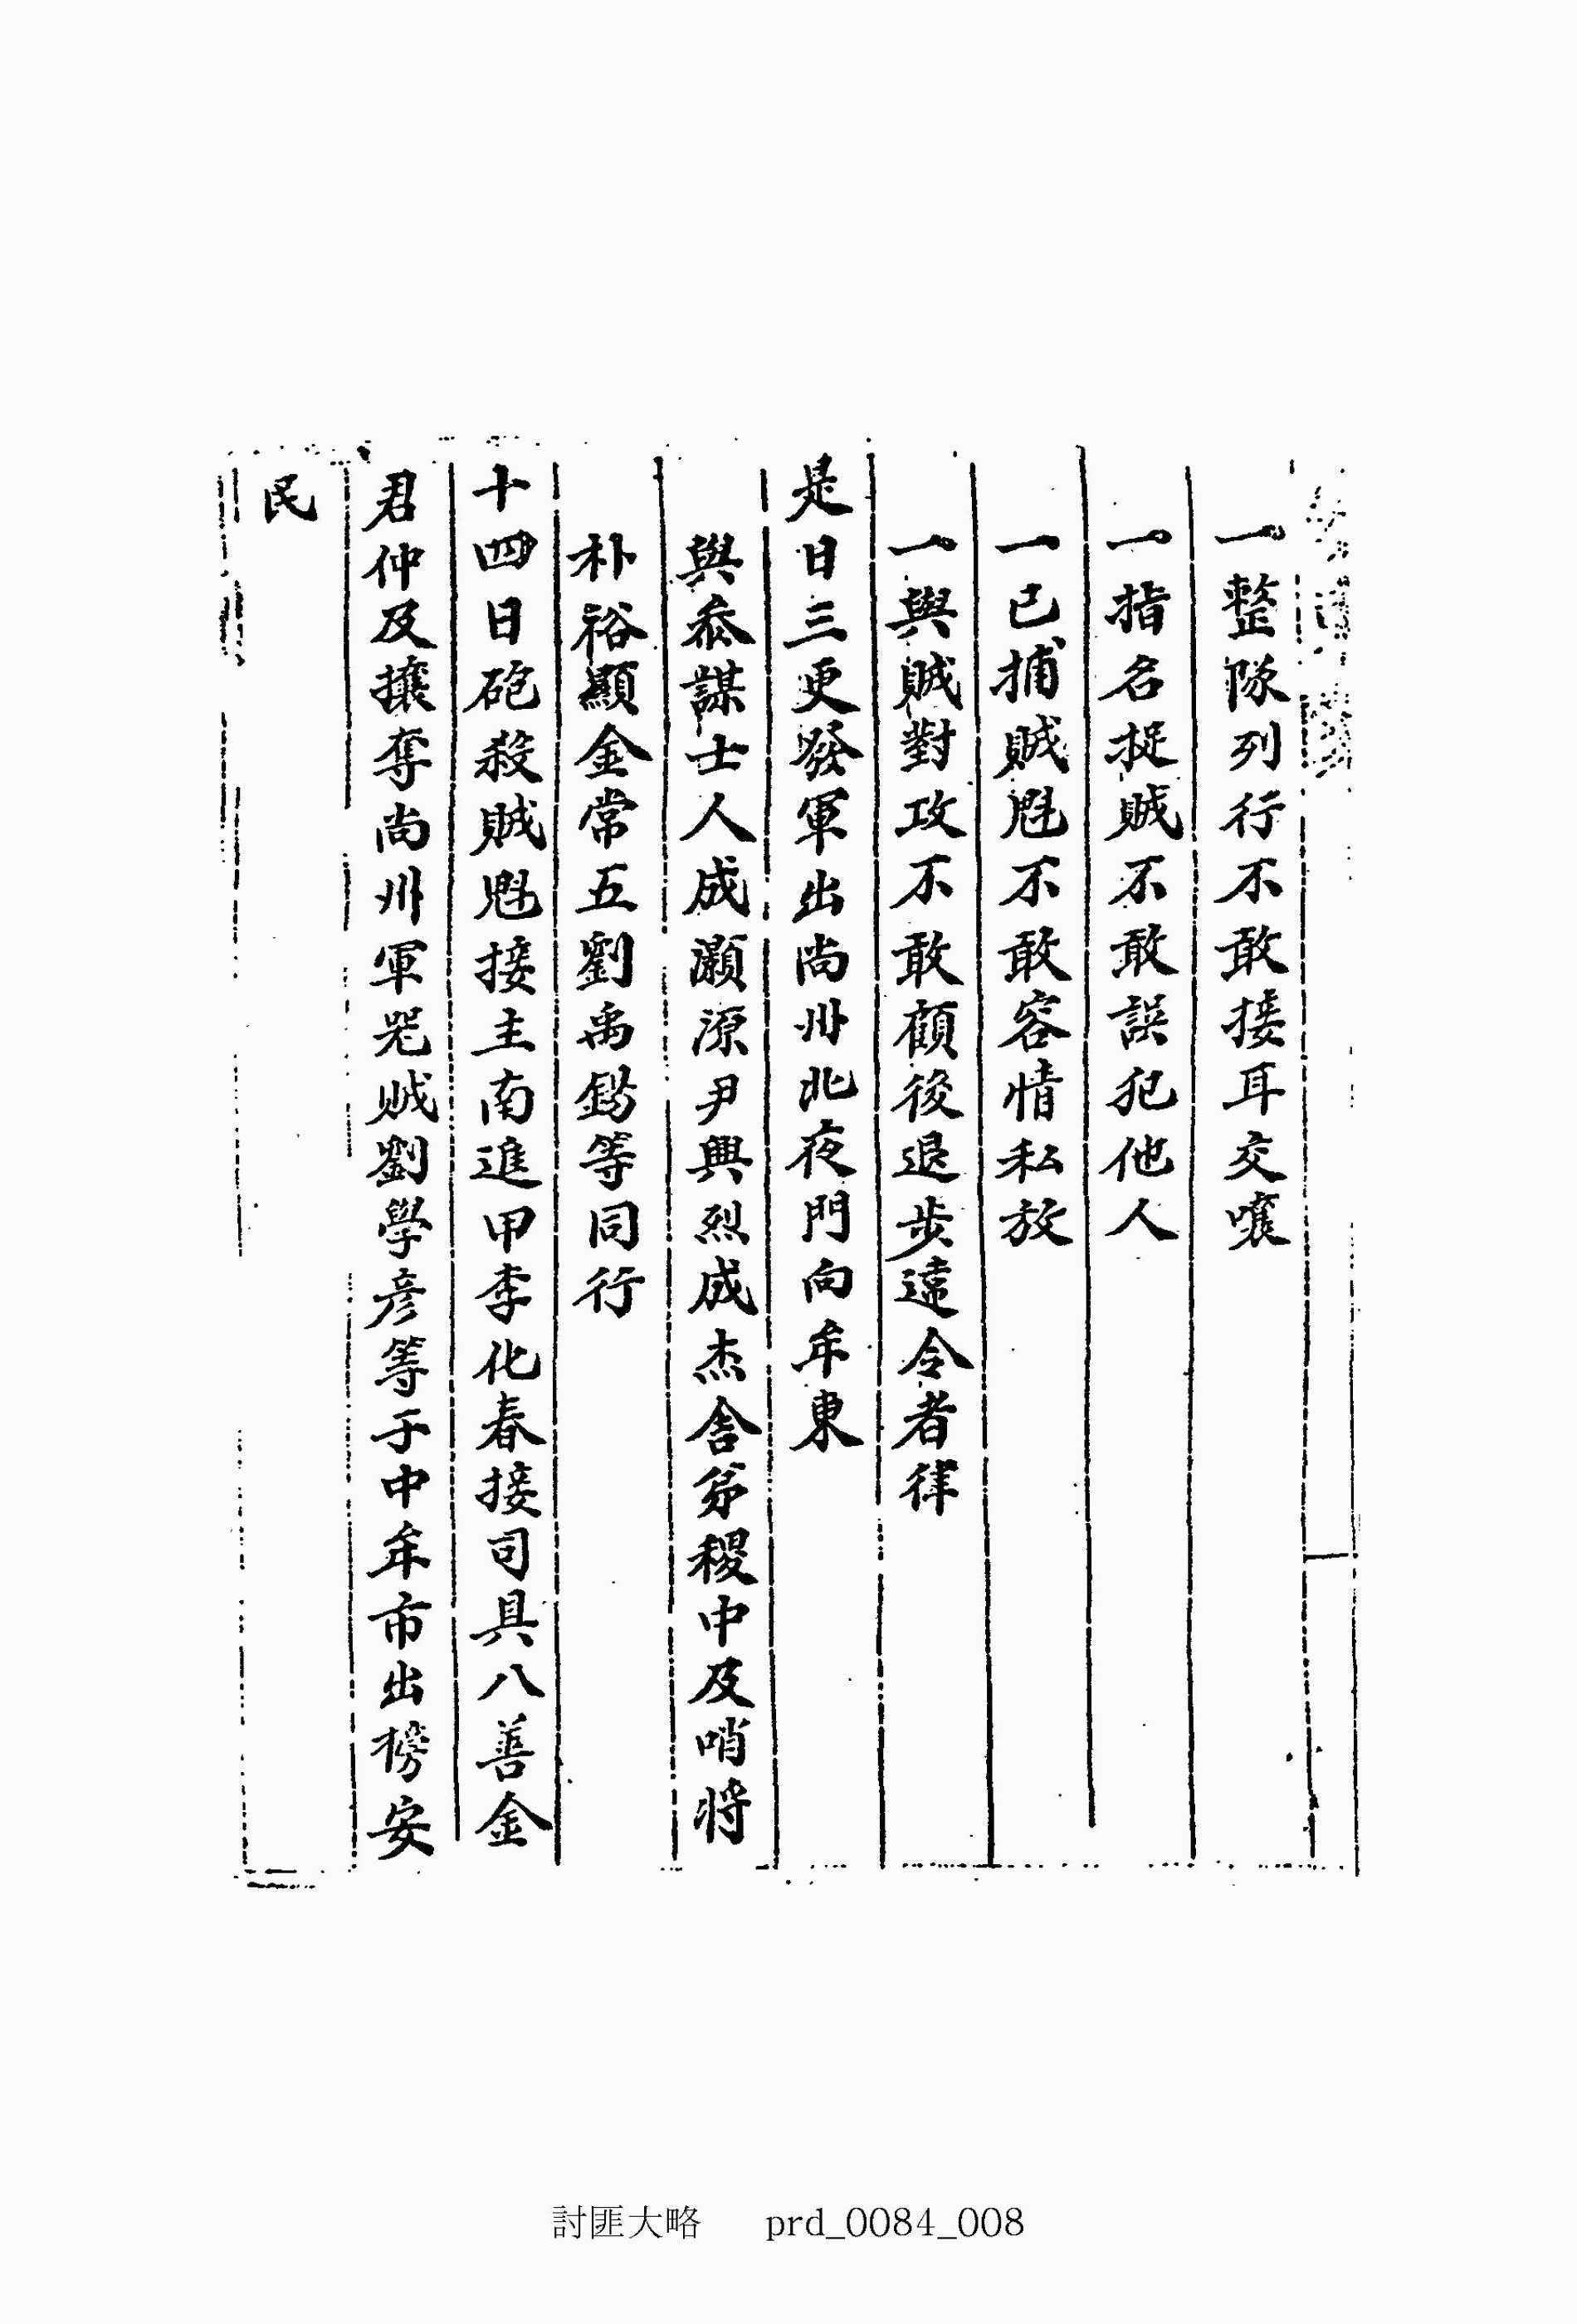 一整隊列行不敢接耳交嚷
一指名捉賊不敢誤犯他人
一已捕賊魁不敢容情私放
一與賊對攻不敢顧後退步違令者律
是日三更發軍出尙州北夜門向牟東
與叅謀士人成灝源尹興烈成杰舍弟稷中及哨將
朴裕顯金常五劉禹錫等同行
十四日砲殺賊魁接主南進甲李化春接司具八善金
君仲及攘奪尙州軍器賊劉學彦等于中牟市出榜安
民
討匪大略 prd_0084_008